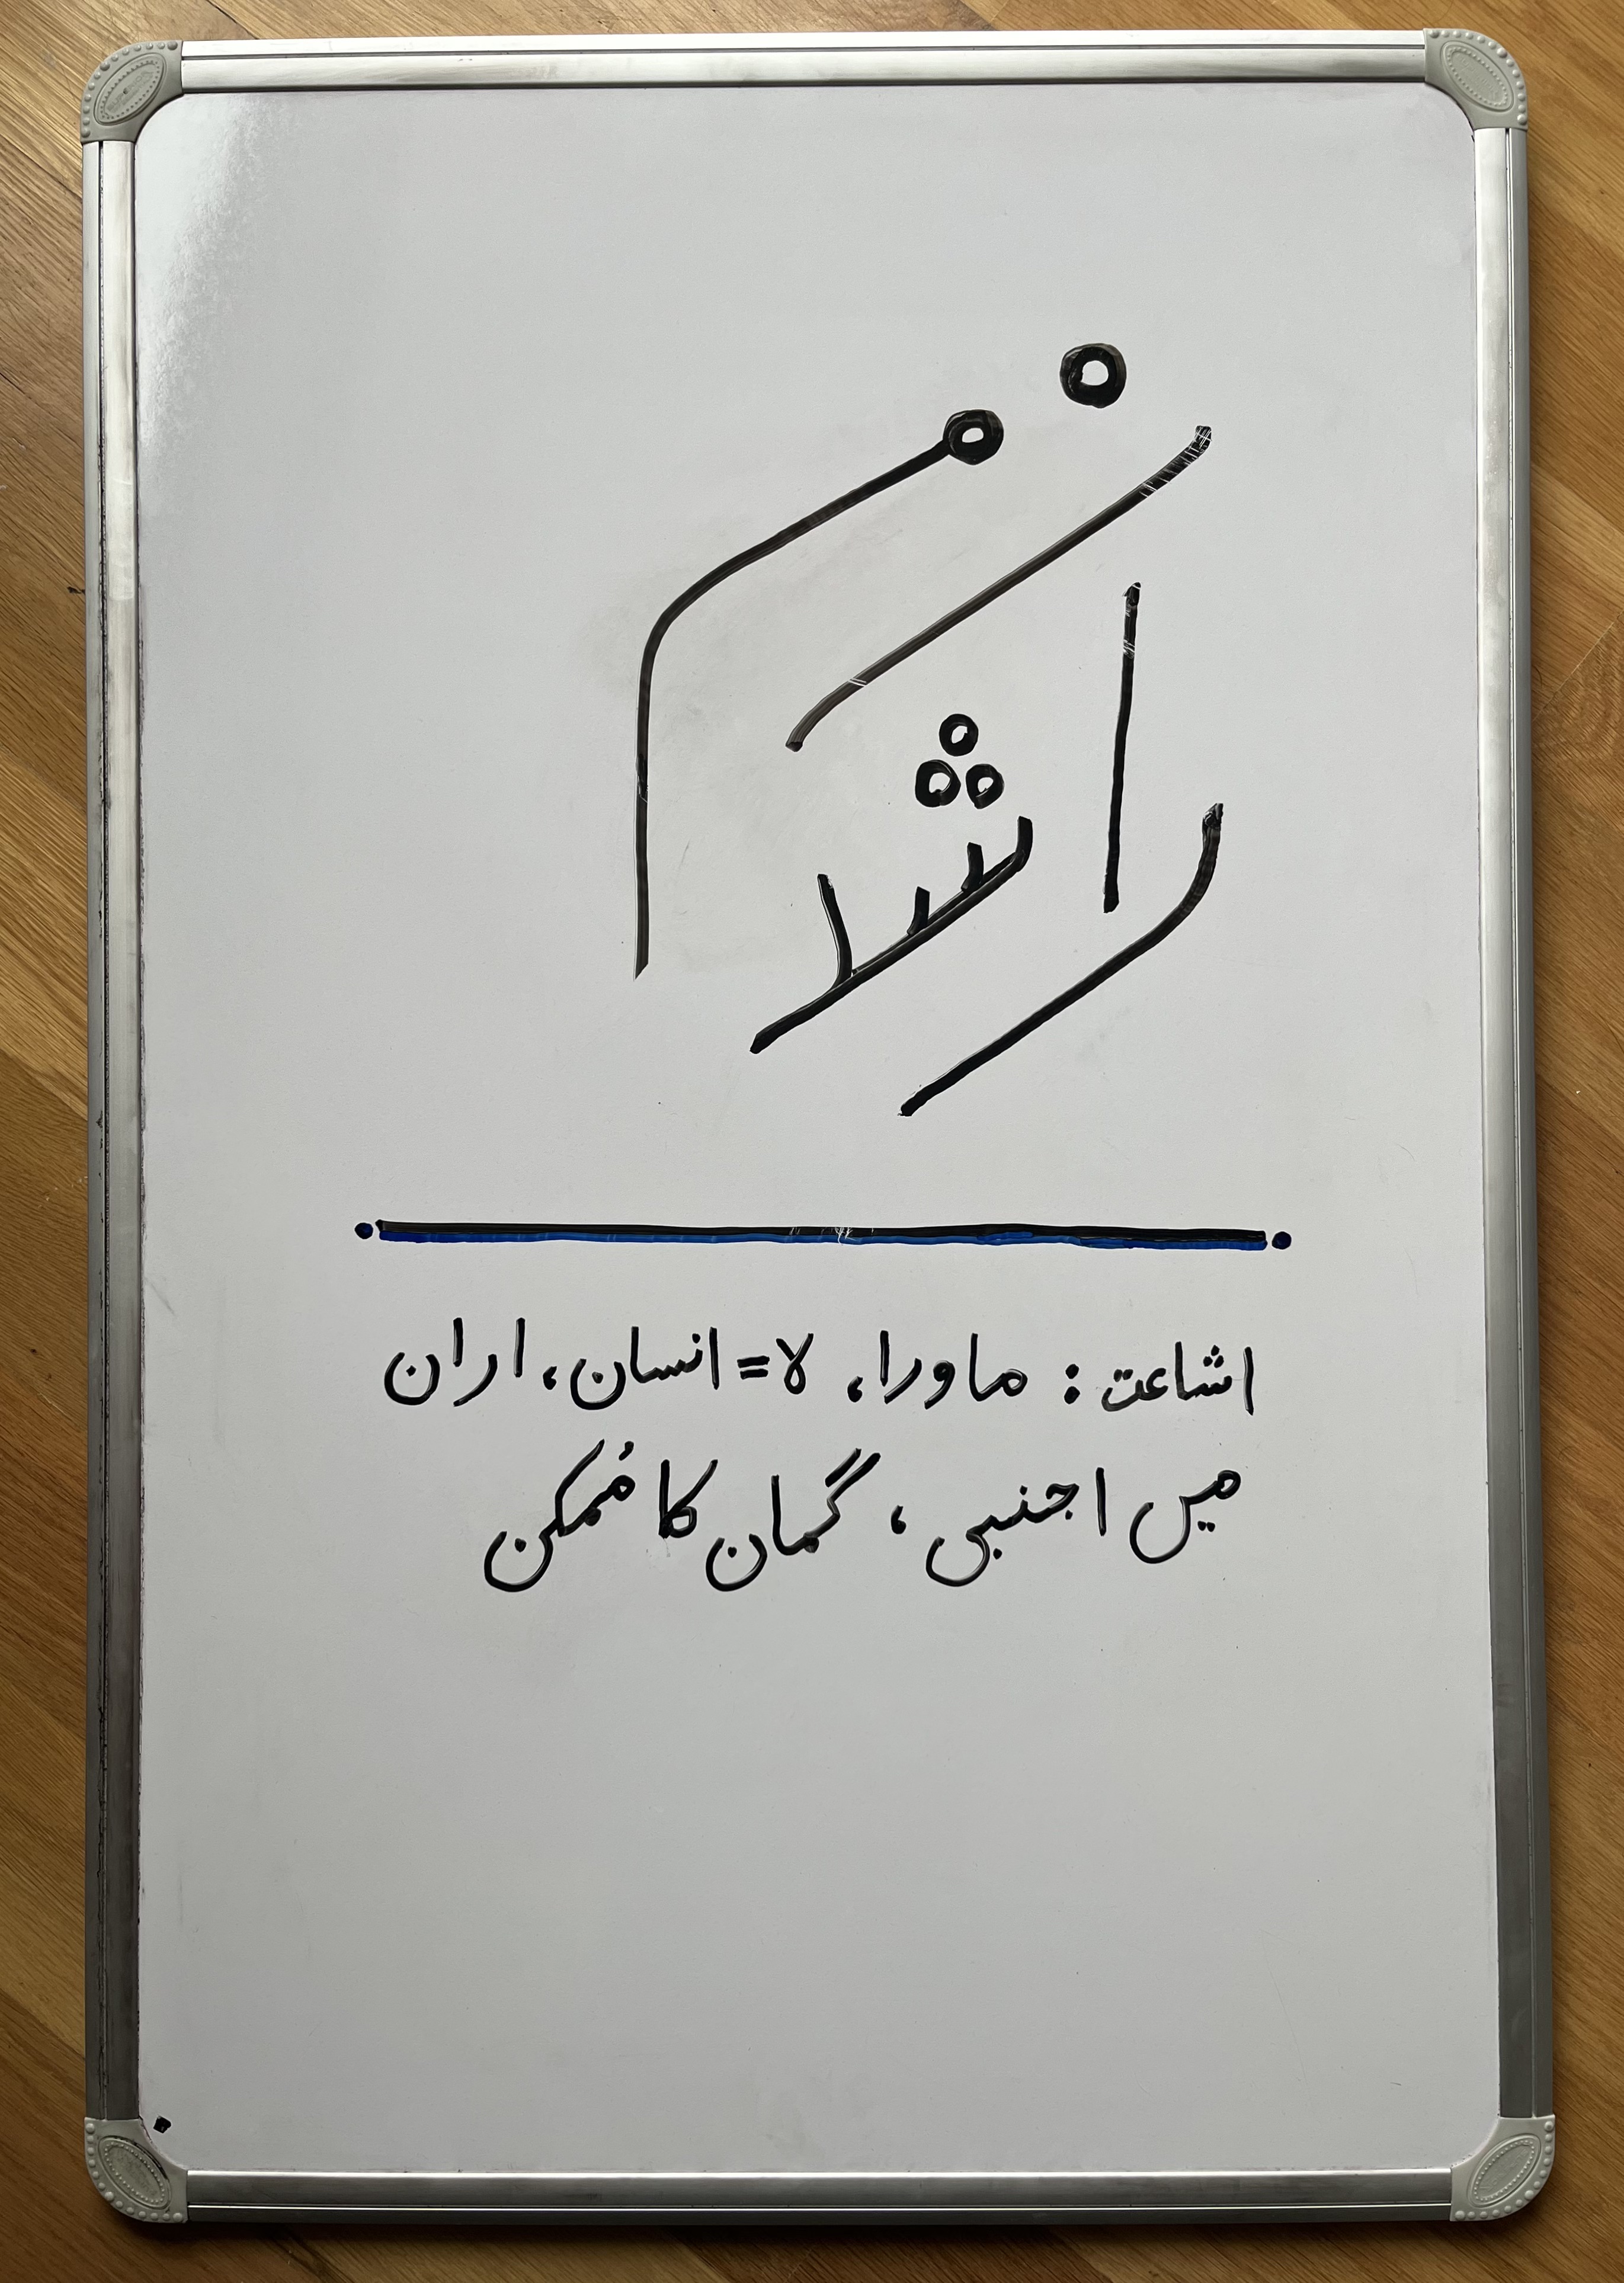 ن م راشد
اشاعت : ماورا، لا=انسان، اران
میں اجنبی، گمان کا مُمکن